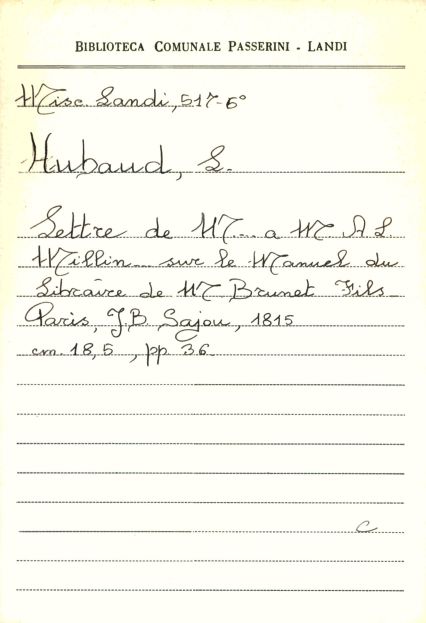 BIBLIOTECA COMUNALE PASSERINI - LANDI
Misc. Landi, 517-6°
Hubaud, L.
Lettre de M... a M. A L.
Millin... sur le Manuel du
Libraire de M Brunet Fils
Paris, J.B. Sajou, 1815
cm. 18,5 , pp 36
C